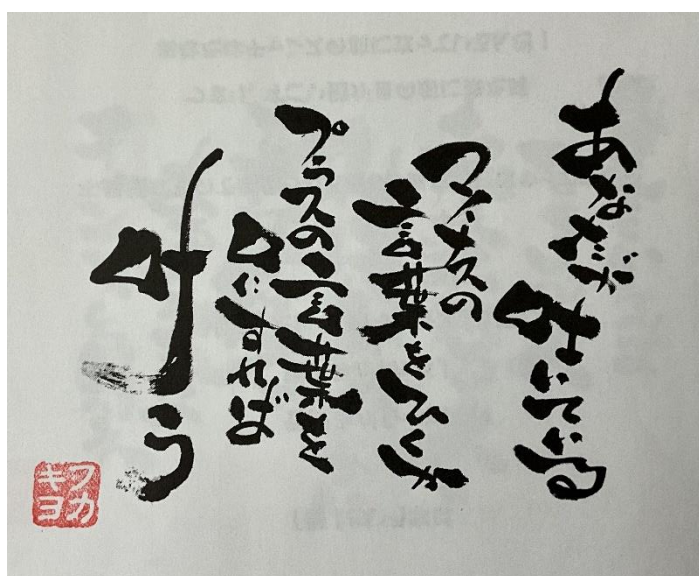 あなたが吐いている
マイナスの
言葉をひくか
プラスの言葉を
口にすれば
叶う
フカ
キヨ